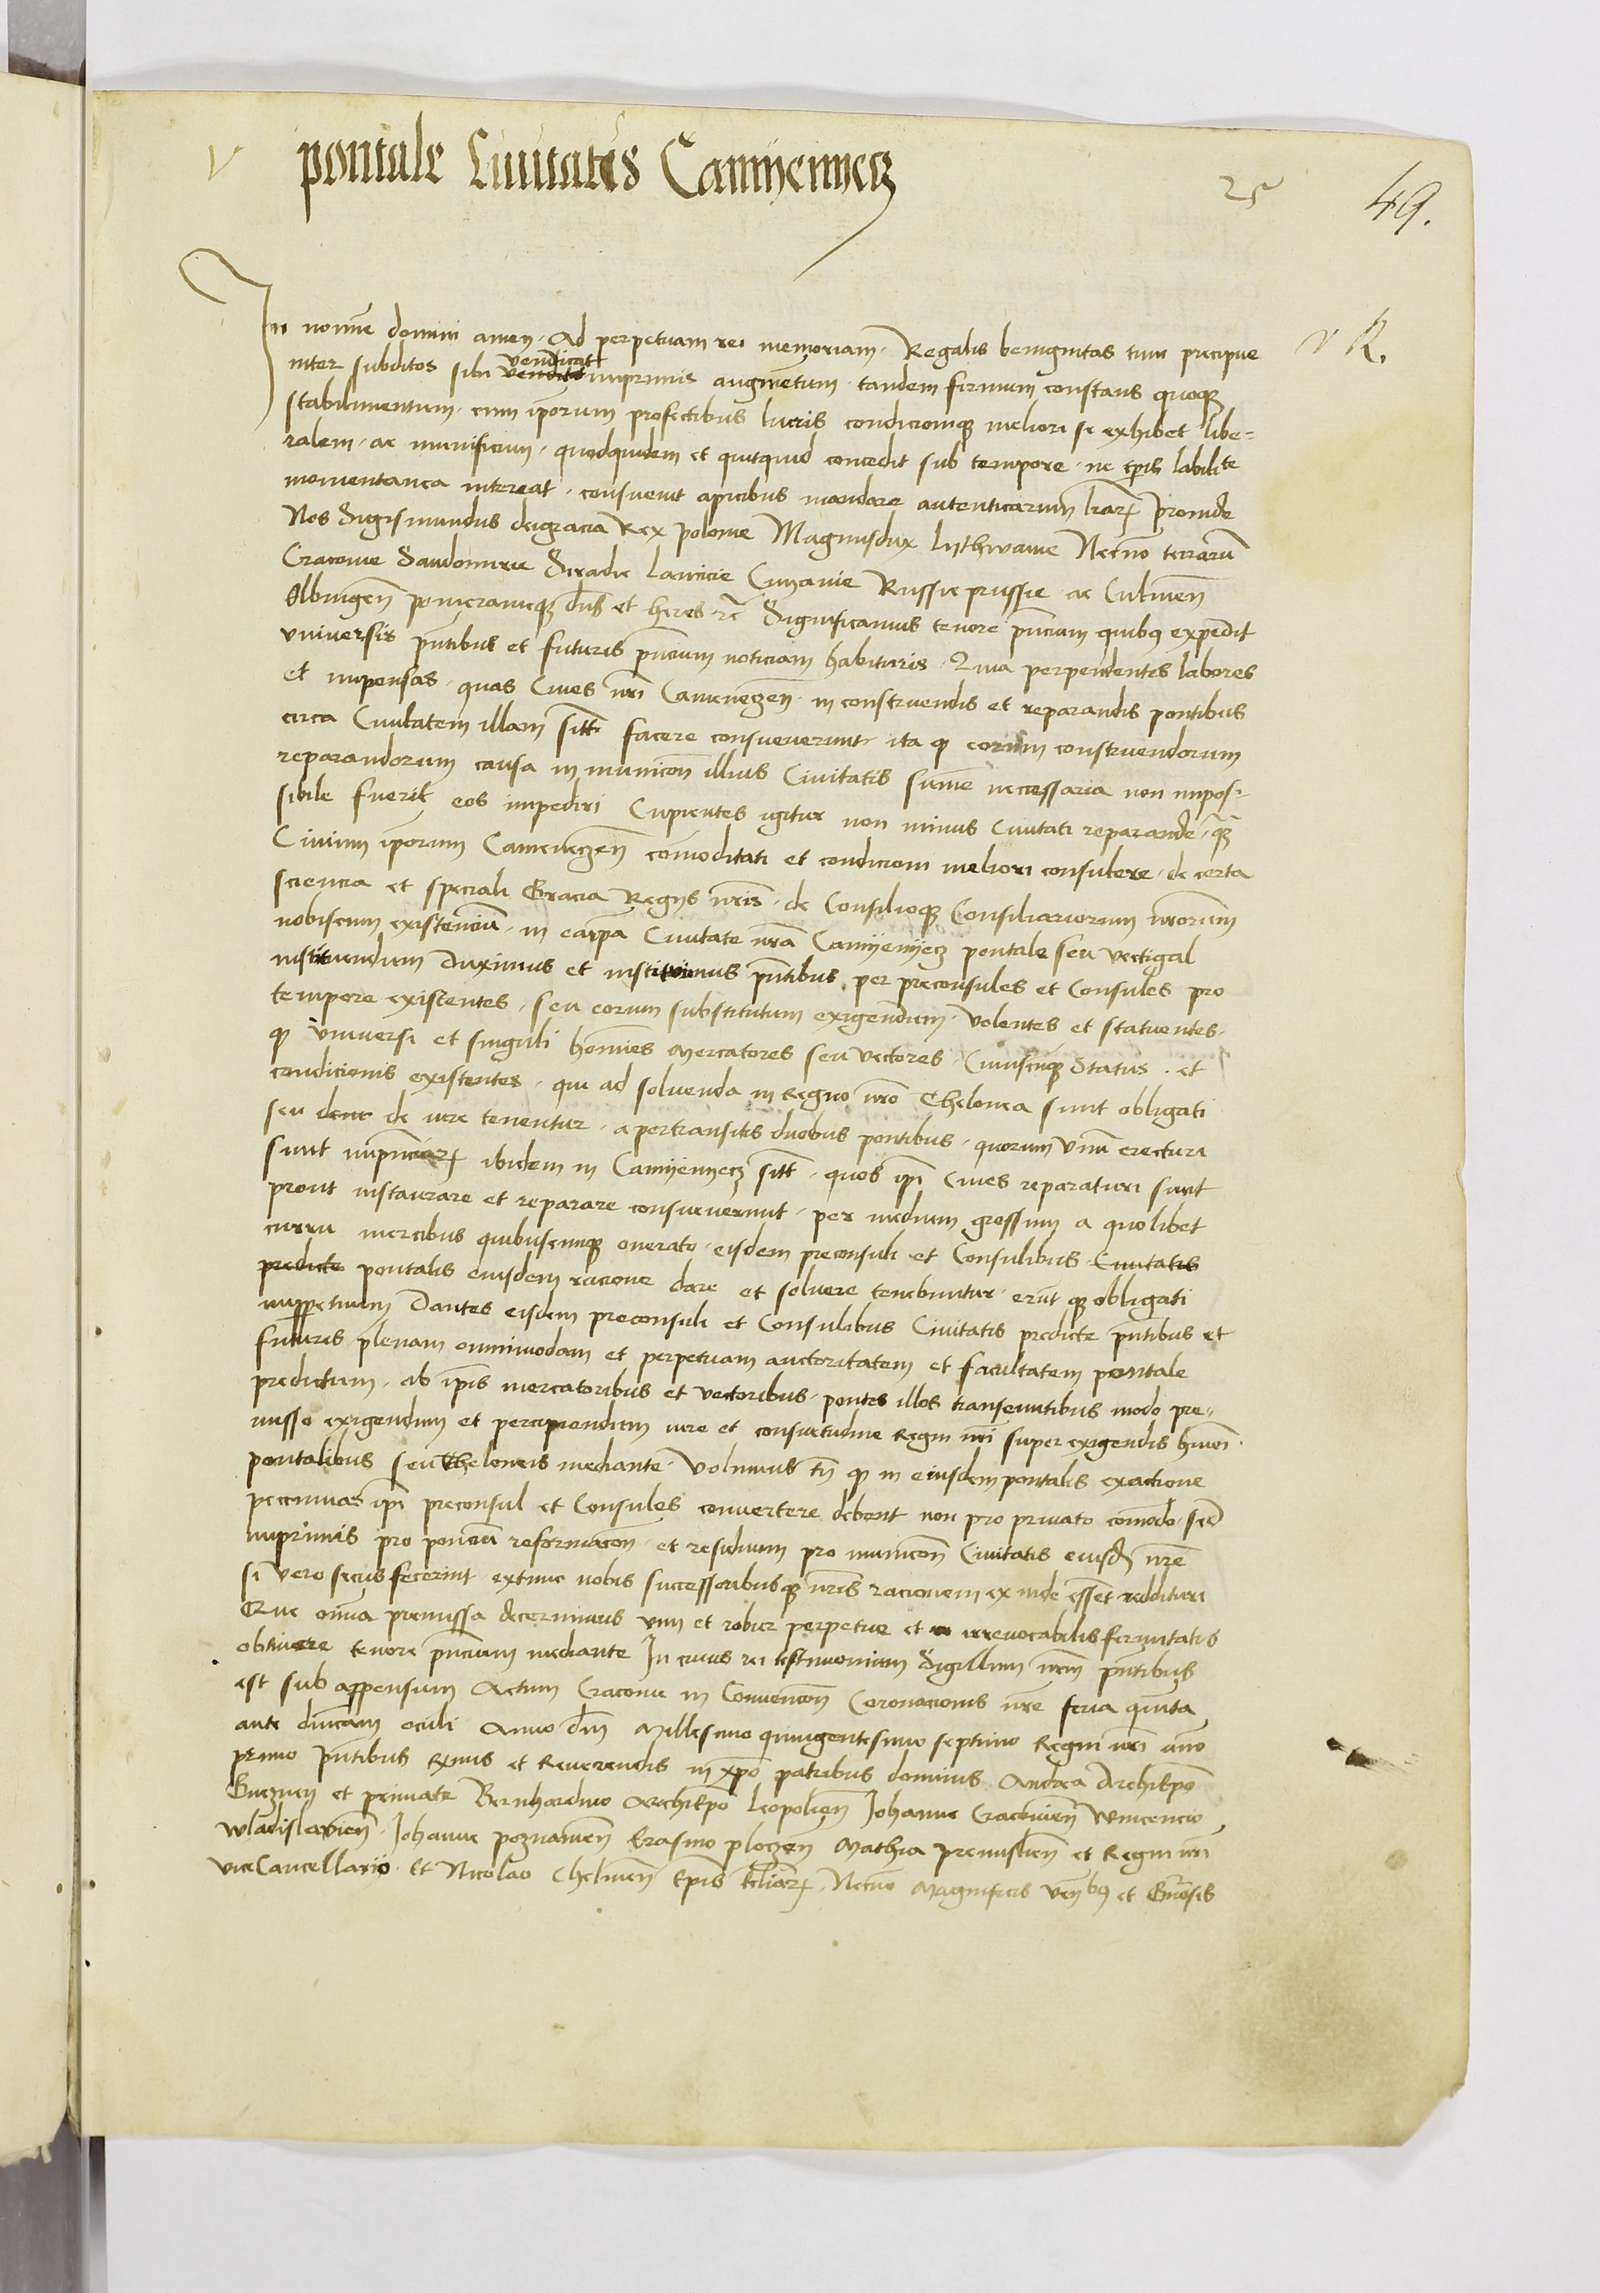 V pontale Civitatis Camyenyecz
25 49.
In nomine domini amen. Ad perpetuam rei memoriam. Regalis benignitas tum precipue V R.
inter subditos sibi vendicat imprimis augmētum. tandem firmum constans quoque
stabilimentum. cum ip̄orum profectibus lucris condicionique meliori se exhibet libe-
ralem. ac munificum. quodquidem et quitquid concedit sub tempore. ne tp̄is labilite
momentanea intereat. consuevit apicibus mandare autenticarum lr̄arꝝ Proinde
Nos Sigismundus deigracia Rex polonie Magnusdux lythwanie Necnō terrarū
Cracovie Sandomirie Siradie lancicie Cuyavie Russie prussie ac Culmen̄
Elbingen̄ pomeranieque dn̄s et heres ⁊c̄ Significamus tenore pn̄cium quibꝰ expedit
vniversis pn̄tibus et futuris pn̄cium noticiam habituris. Quia perpendentes labores
et impensas. quas Cives nr̄i Cameneczen̄. in construendis et reparandis pontibus
circa Civitatem illam sitt̄ facere consueverunt ita ꝙ eorum construendorum
reparandorum causa in municōn illius Civitatis sūme necessaria non impos-
sibile fuerit eos impediri Cupientes igitur non minus Civitati reparande. qꝫ
Civium ip̄orum Cameneczen̄ cōmoditati et condicioni meliori consulere. de certa
sciencia et speciali Gracia Regijs nr̄is. de Consilioque Consiliariorum nr̄orum
nobiscum existenciū. in eap̄a Civitate nr̄a Camyenyecz pontale seu vectigal
instituendum duximus et instituimus pn̄tibus. per preconsules et Consules pro
tempore existentes. seu eorum substitutum exigendum. volentes et statuentes.
ꝙ vniversi et singuli homines mercatores seu vectores. Cuiuscunque Status. et
condicionis existentes. qui ad solvenda in Regno nr̄o Thelonea sunt obligati
seu de iure tenentur. a pertransitis duobus pontibus. quorum vnū erecturi
sunt inpn̄ciarꝝ ibidem in Camyenyecz sitt̄. quos ip̄i Cives reparaturi sunt
prout instaurare et reparare consueverunt. per medium grossum a quolibet
curru mercibus quibuscunque onerato. eisdem preconsuli et Consulibus Civitatis
predicte pontalis eiusdem racione dare et solvere tenebuntur. erūt que obligati
imperpetuum Dantes eisdem preconsuli et Consulibus Civitatis predicte pn̄tibus et
futuris plenam omnimodam et perpetuam auctoritatem et facultatem pontale
predictum. ab ip̄is mercatoribus et vectoribus. pontes illos transeuntibus modo pre-
misso exigendum et percipiendum iure et consuetudine Regni nr̄i super exigendis hm̄oi.
pontalibus seu Theloneis mediante. volumus tn̄ ꝙ in eiusdem pontalis exactione
peccunias ip̄i preconsul et Consules convertere debent non pro privato cōmodo. sed
inprimis pro ponciū reformacōn. et residuum pro municōn Civitatis eiusd̄ nr̄e
Si vero secus fecerint extunc nobis successoribusque nr̄is racionem ex inde essent reddituri
Que omīa premissa decernimus vim et robur perpetue et irrevocabilis firmitatis
obtinere tenore pn̄cium mediante In cuius rei testimonium Sigillum nr̄m pn̄tibus
est sub appensum Actum Cracovie in Convencōn Coronacionis nr̄e feria quinta
ante dn̄icam oculi Anno dn̄i Millesimo quingentesimo septimo Regni nr̄i āno
primo pn̄tibus Rm̄is et Reverendis in xp̄o patribus dominis Andrea Archiep̄o
Gneznen̄ et primate Bernhardino Archiep̄o leopolien̄ Johanne Cracovien̄ Vincencio
Wladislavien̄. Johanne poznanien̄ Erasmo plocen̄ Mathia premislien̄ et Regni nr̄i
viceCancellario. Et Nicolao Chelmen̄ Ep̄is Ecl̄iarꝝ. Necnō Magnificis ven̄bꝰ et Gn̄osis